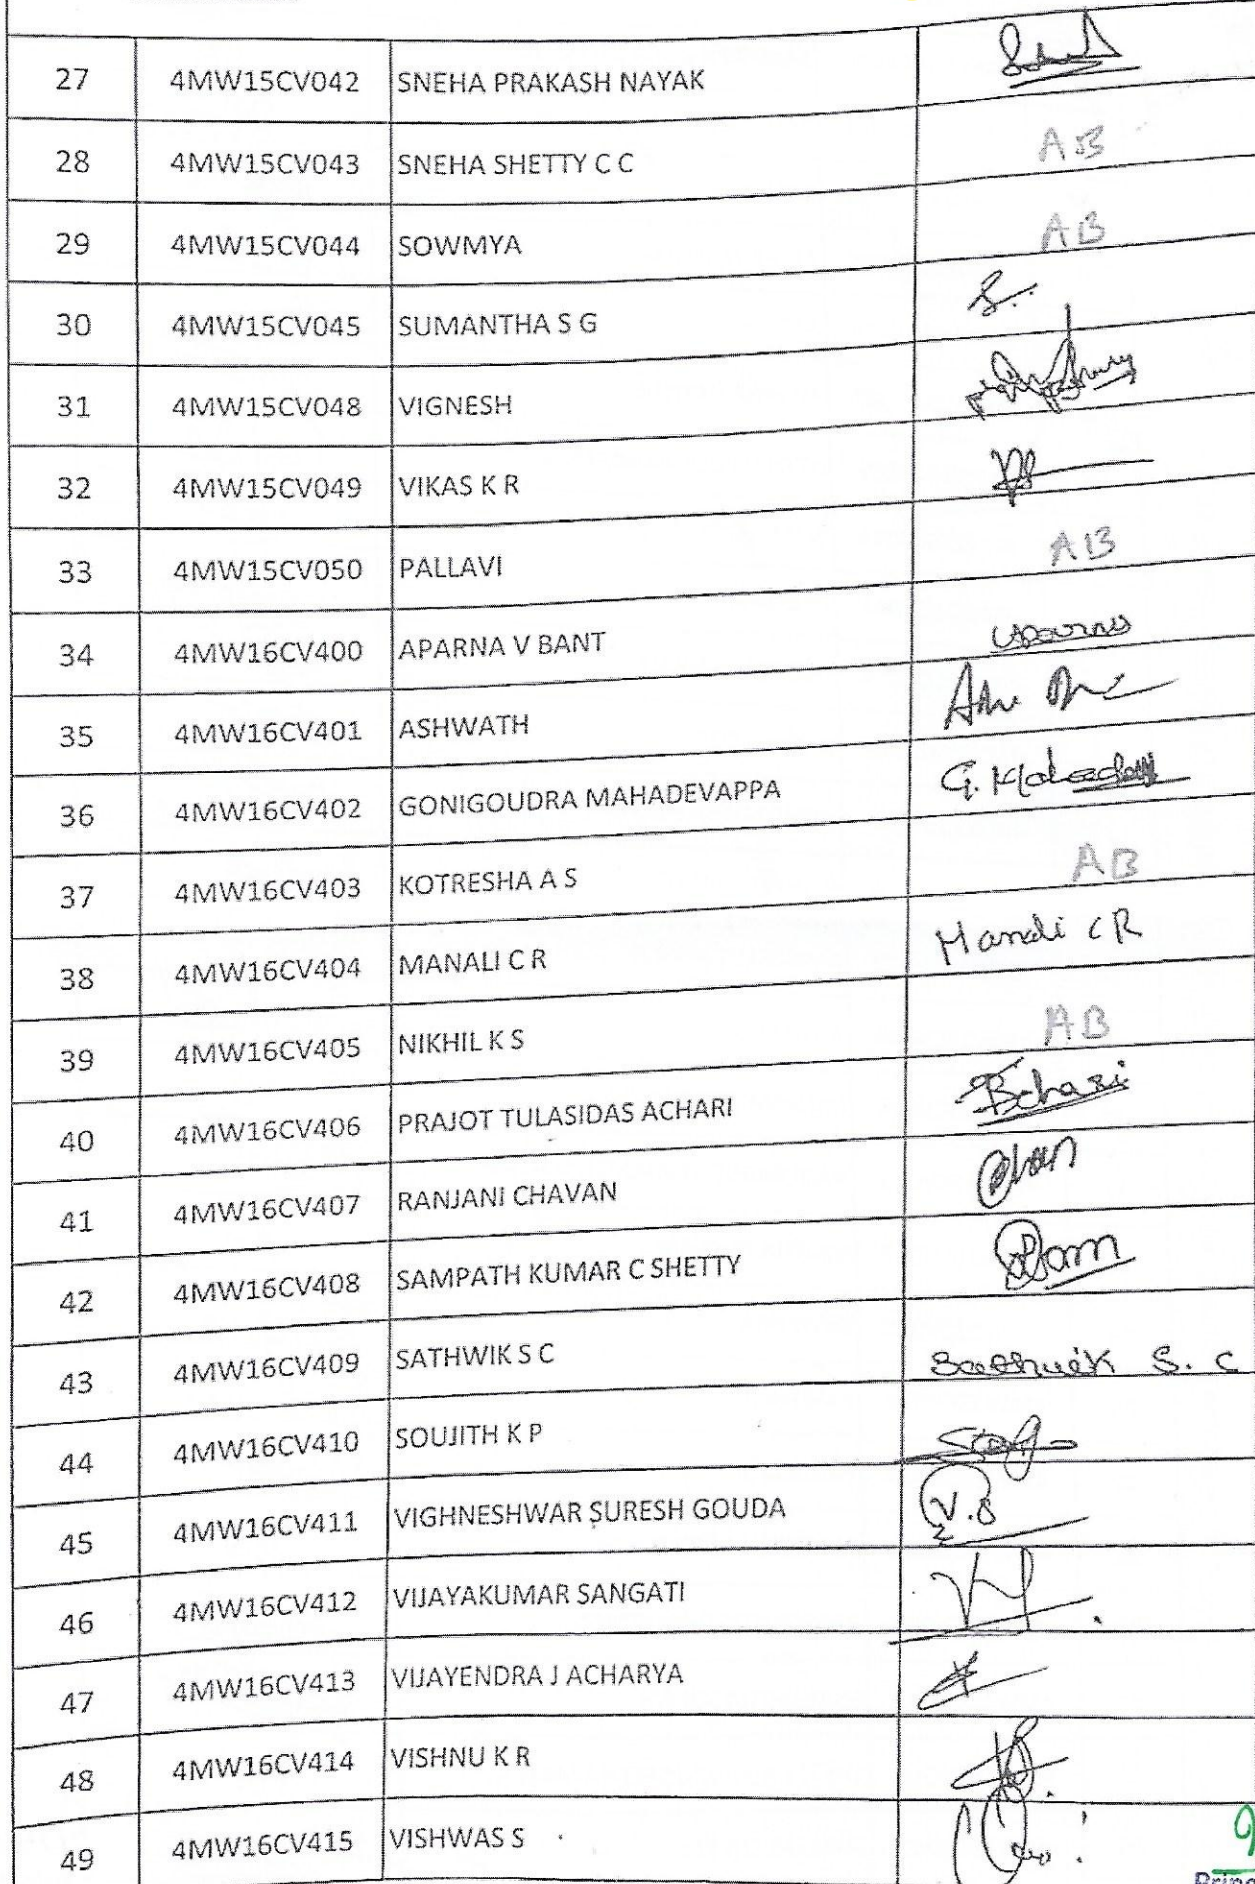 27 4MW15CV042 SNEHA PRAKASH NAYAK
28 4MW15CV043 SNEHA SHETTY C C AB
29 4MW15CV044 SOWMYA AB
30 4MW15CV045 SUMANTHA S G S.
31 4MW15CV048 VIGNESH
32 4MW15CV049 VIKAS K R
33 4MW15CV050 PALLAVI AB
34 4MW16CV400 APARNA V BANT
35 4MW16CV401 ASHWATH
36 4MW16CV402 GONIGOUDRA MAHADEVAPPA
37 4MW16CV403 KOTRESHA A S AB
38 4MW16CV404 MANALI C R Manali C R
39 4MW16CV405 NIKHIL K S AB
40 4MW16CV406 PRAJOT TULASIDAS ACHARI
41 4MW16CV407 RANJANI CHAVAN
42 4MW16CV408 SAMPATH KUMAR C SHETTY
43 4MW16CV409 SATHWIK S C Sathwik S. C
44 4MW16CV410 SOUJITH K P
45 4MW16CV411 VIGHNESHWAR SURESH GOUDA V.S
46 4MW16CV412 VIJAYAKUMAR SANGATI
47 4MW16CV413 VIJAYENDRA J ACHARYA
48 4MW16CV414 VISHNU K R
49 4MW16CV415 VISHWAS S